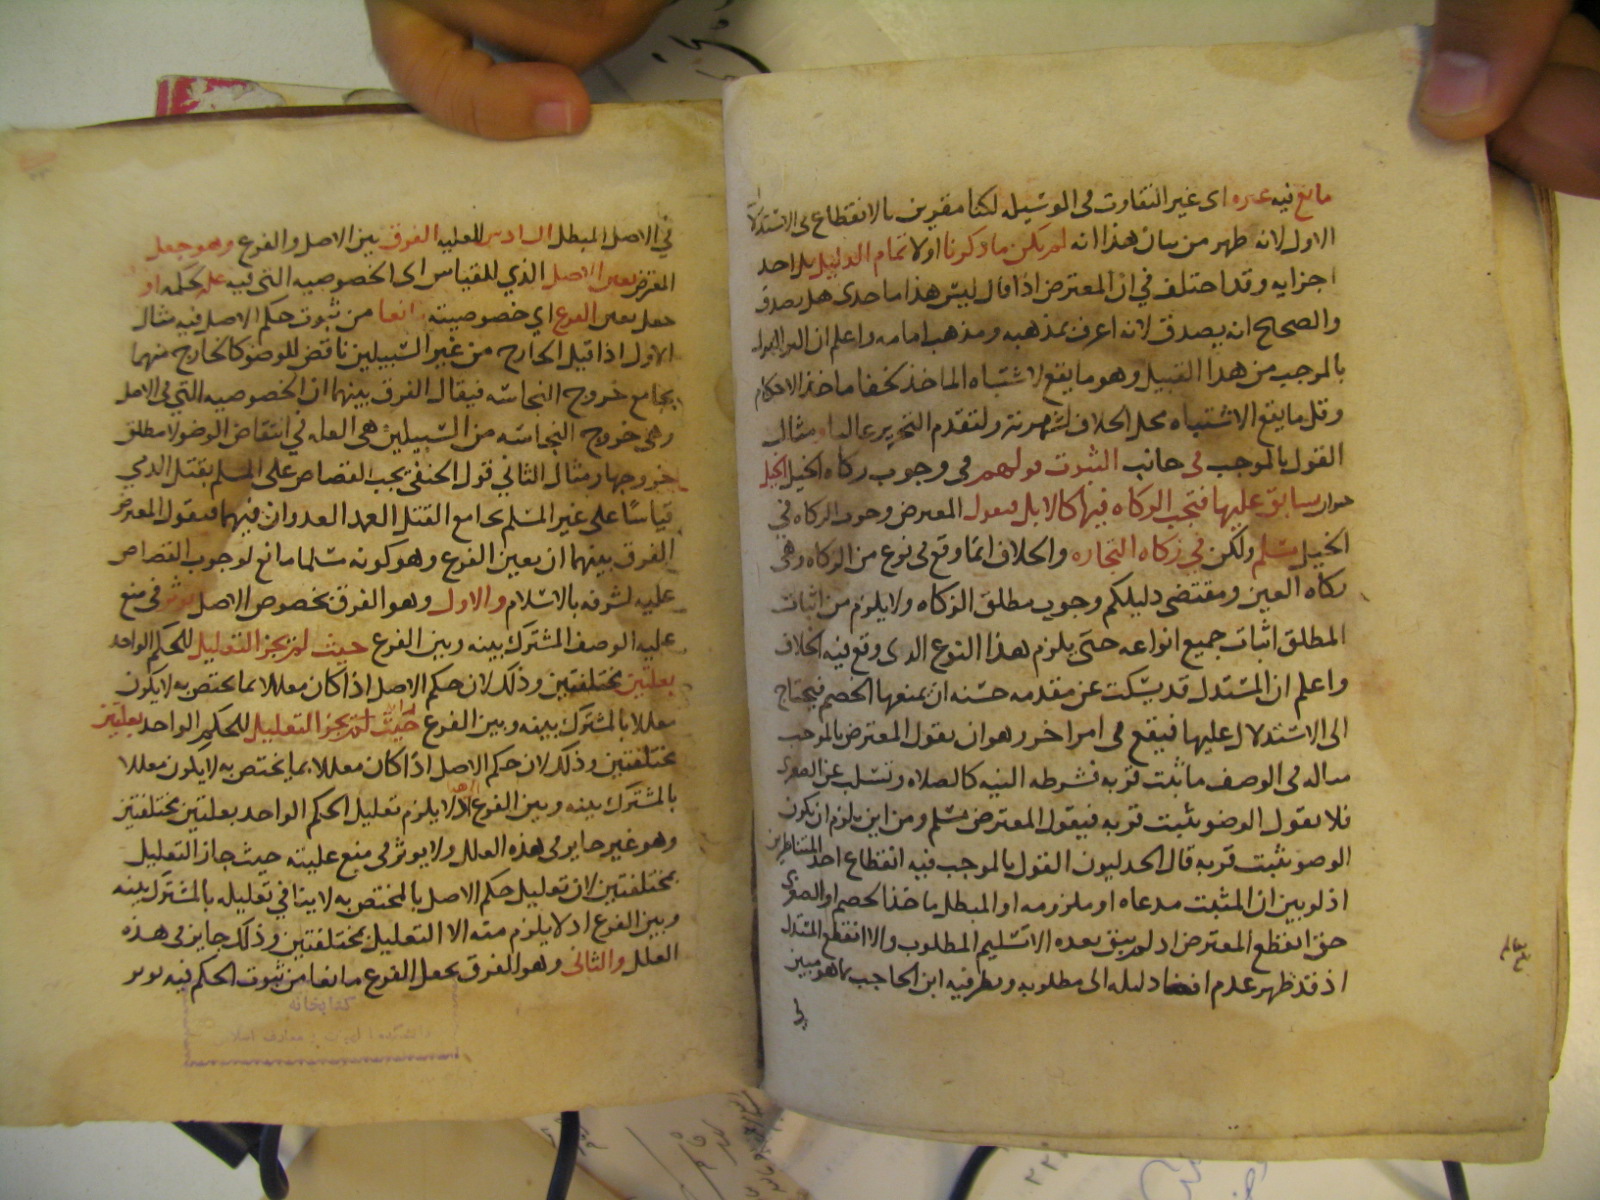 مانع فيه غيره اى غير التفاوت فى الوسيله لكنا مقرين بالانقطاع فى الاستدلال
الاول لانه ظهر من بيان هذا انه لم يكن ما ذكرنا اولا تمام الدليل بل احد
اجزايه وقد اختلف في ان المعترض اذا قال ليس هذا ماخذى هل يصدق
والصحاح انه يصدق لانه اعرف بمذهبه ومذهب امامه واعلم ان
بالموجب من هذا القبيل وهو ما يقع لاشتباه الماخذ لخفا ماخذ الاحكام
وقل ما يقع الاشتباه محل الخلاف لشهرته ولتقدم التحرير غالبا ومثال
القول بالموجب فى جانب الثبوت قولهم فى وجوب زكاه الخيل الخيل
حيوان يسابق عليها فتجب الزكاه فيها كالابل فيقول المعترض وجوب الزكاه في
الخيل مسلم ولكن في زكاه التجاره والخلاف انما وقع فى نوع من الزكاه وهى
زكاه العين ومقتضى دليلكم وجوب مطلق الزكاه ولا يلزم من اثبات
المطلق اثبات جميع انواعه حتى يلزم هذا النوع الذى وقع فيه الخلاف
واعلم ان المستدل قد يسكت عن مقدمه خشيه ان يمنعها الخصم فيحتاج
الى الاستدلال عليها فيقع فى امر اخر وهو ان يقول المعترض بالموجب
مثاله فى الوصف ما ثبت قربه فشرطه النيه كالصلاه وتسكت عن الصغرى
فلا يقول الوضو ثبت قربه فيقول المعترض مسلم ومن اين يلزم ان يكون
الوضو ثبت قربه قال الجدليون القول بالموجب فيه انقطاع احد المتناظرين
اذ لو بين ان المثبت مدعاه او ملزومه او المبطل ماخذ الخصم او الصغرى
حق انقطع المعترض اذ لم يبق بعده الا تسليم المطلوب والا انقطع المستدل
اذ قد ظهر عدم افضا دليله الى مطلوبه ونظر فيه ابن الحاجب بما هو مبين
في الاصل المبطل السادس للعليه الفرق بين الاصل والفرع وهو جعل
المعترض تعين الاصل الذي للقياس اى الخصوصيه التى فيه عله لحكمه او
جعل تعين الفرع اي خصوصيته مانعا من ثبوت حكم الاصل فيه مثال
الاول اذا قيل الخارج من غير السبيلين ناقض للوضو كالخارج منهما
بجامع خروج النجاسه فيقال الفرق بينهما ان الخصوصيه التي فى الاصل
وهى خروج النجاسه من السبيلين هى العله في انتقاض الوضو لا مطلق
خروجها ومثال الثاني قول الحنفي يجب القصاص على المسلم بقتل الذمي
قياسا على غير المسلم بجامع القتل العمد العدوان فيهما فيقول المعترض
الفرق بينهما ان تعين الفرع وهو كونه مسلما مانع لوجوب القصاص
عليه لشرفه بالاسلام والاول وهو الفرق بخصوص الاصل يوثر في منع
عليه الوصف المشترك بينه وبين الفرع حيث لم يجز التعليل للحكم الواحد
بعلتين مختلفتين وذلك لان حكم الاصل اذا كان معللا بما يختص به لا يكون
معللا بالمشترك بينه وبين الفرع حيث لم يجز التعليل للحكم الواحد بعلتين
مختلفتين وذلك لان حكم الاصل اذا كان معللا بما يختص به لا يكون معللا
بالمشترك بينه وبين الفرع اذ لا يلزم تعليل الحكم الواحد بعلتين مختلفتين
وهو غير جايز فى هذه العلل ولا يوثر فى منع عليته حيث جاز التعليل
بمختلفتين لان تعليل حكم الاصل بالمختص به لا ينافي تعليله بالمشترك بينه
وبين الفرع اذ لا يلزم منه الا التعليل بمختلفتين وذلك جايز فى هذه
العلل والثانى وهو الفرق بجعل الفرع مانعا من ثبوت الحكم فيه يوثر
كتابخانه